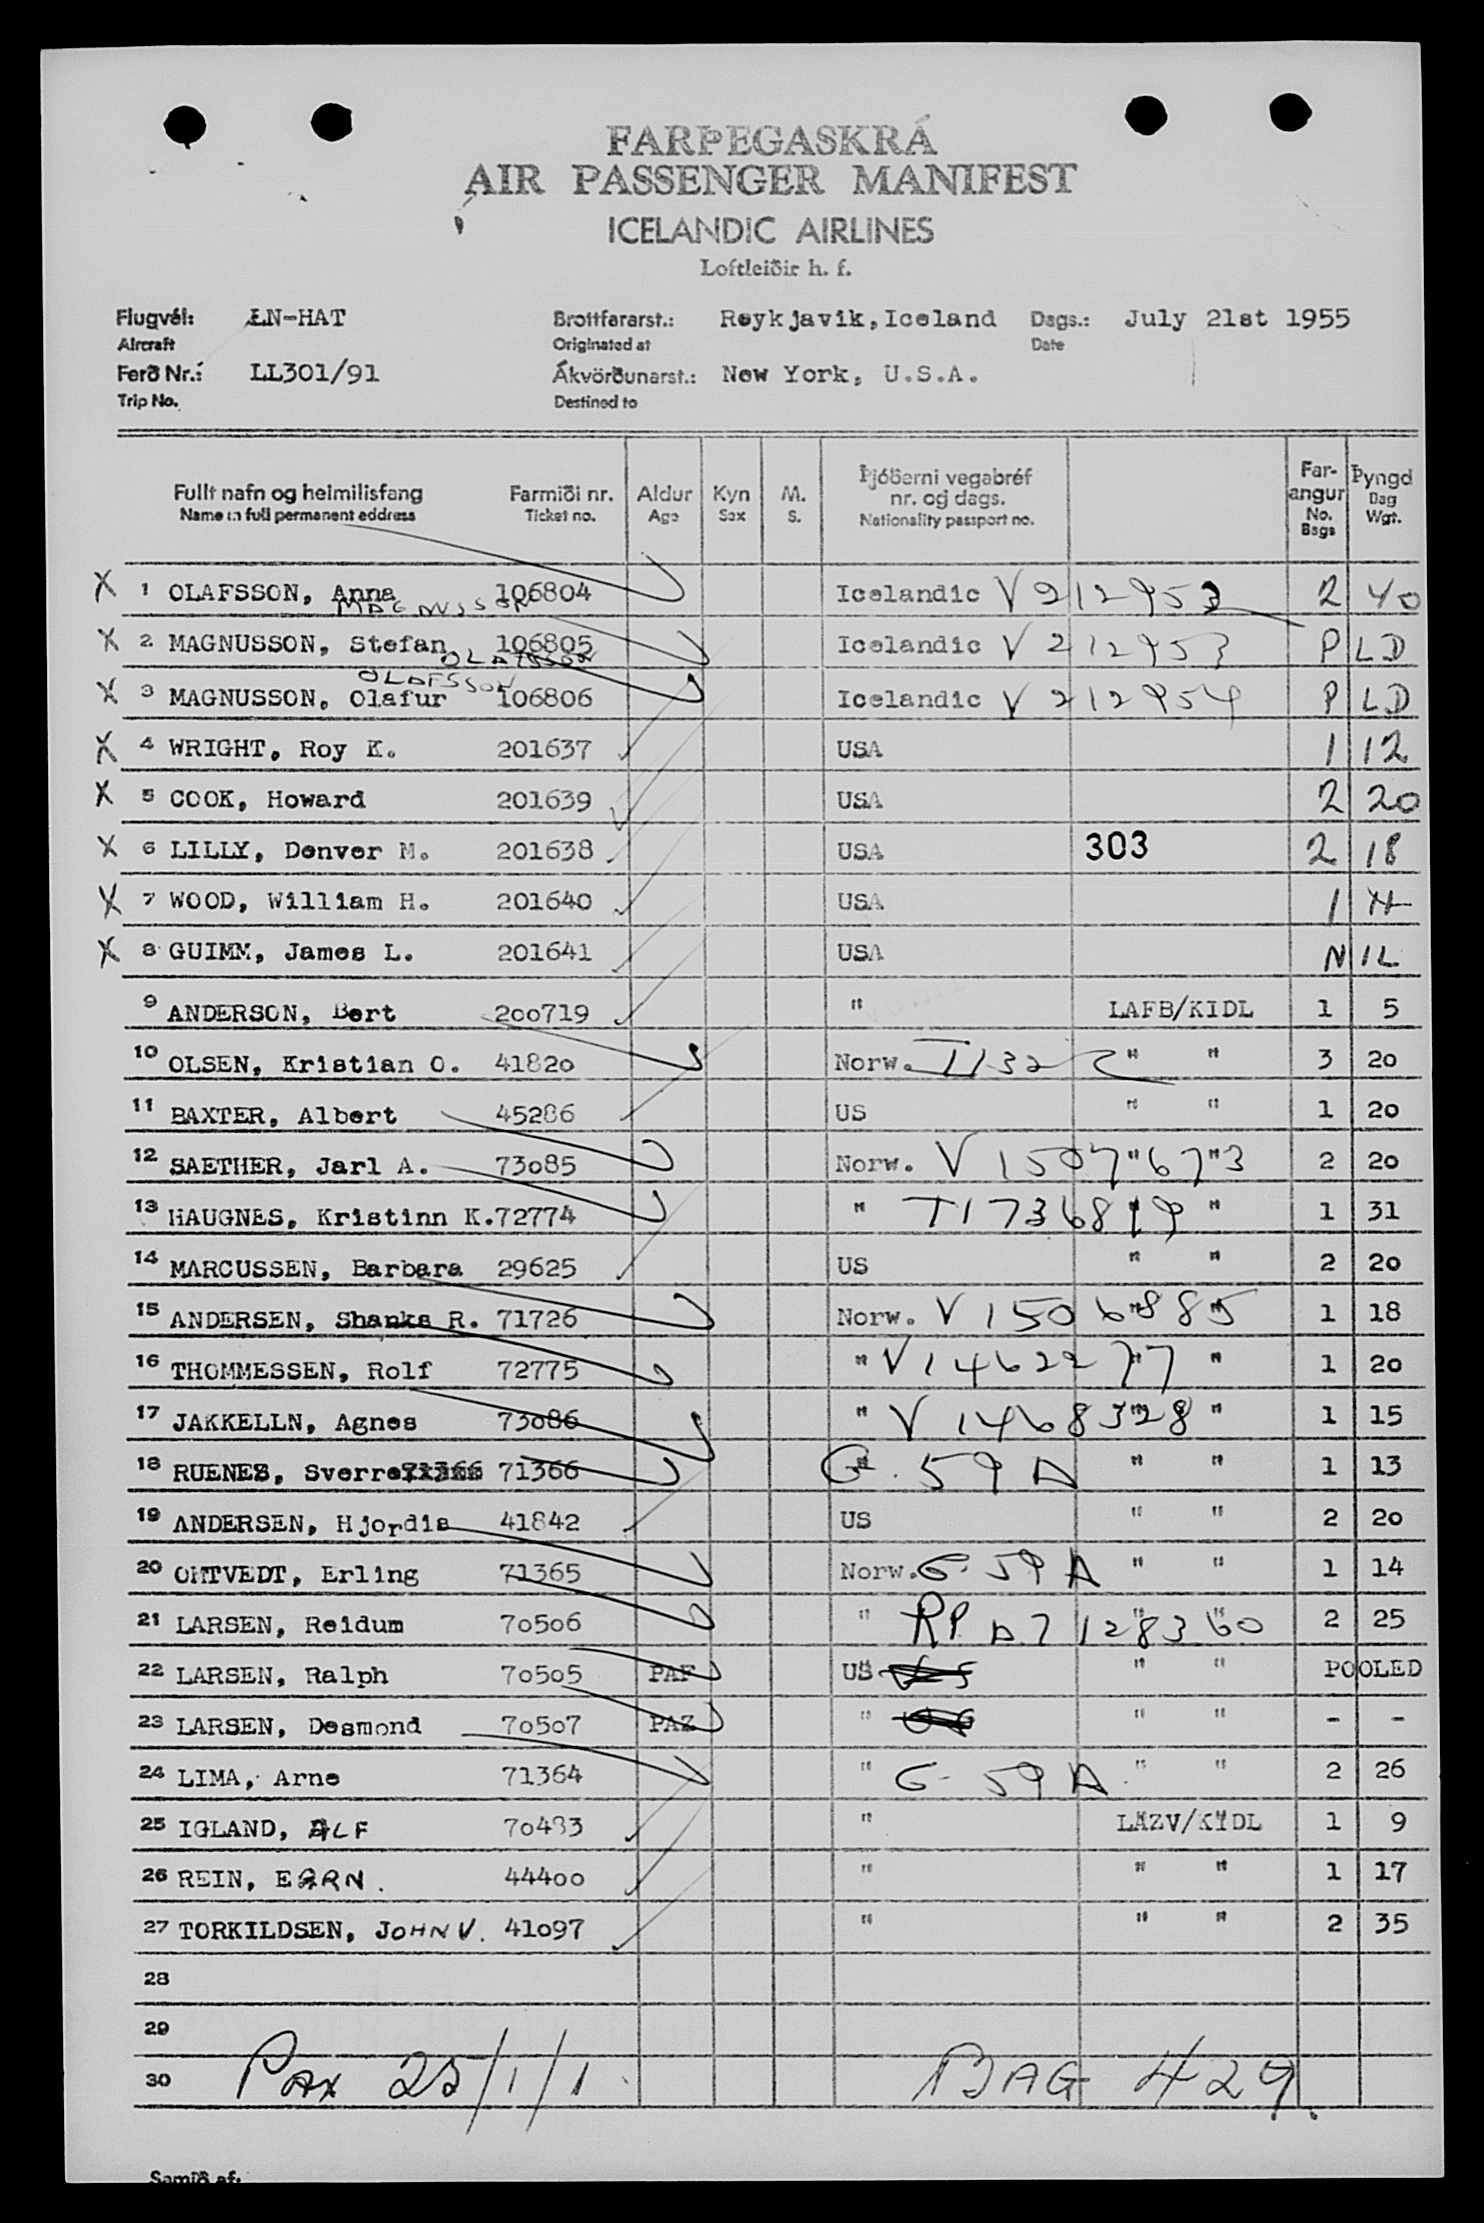 FARÞEGASKRÁ
AIR PASSENGER MANIFEST
ICELANDIC AIRLINES
Loftleiðir h. f.
Flugvél: LN-HAT Brottfararst.: Reykjavik, Iceland Dags.: July 21st 1955
Aircraft Originated at Date
Ferð Nr.: LL301/91 Ákvörðunarst.: New York, U.S.A.
Trip No. Destined to
Fullt nafn og heimilisfang Farmiði nr. Aldur Kyn M. Þjóðerni vegabréf nr. og dags. Farangur Þyngd
Name in full permanent address Ticket no. Age Sex S. Nationality passport no. No. Bags Bag Wgt.
X 1 OLAFSSON, Anna 106804 Icelandic V 212953 2 40
MAGNUSSON
X 2 MAGNUSSON, Stefan 106805 Icelandic V 212953 P LD
OLAFSSON
OLAFSSON
X 3 MAGNUSSON, Olafur 106806 Icelandic V 212954 P LD
X 4 WRIGHT, Roy K. 201637 USA 1 12
X 5 COOK, Howard 201639 USA 2 20
X 6 LILLY, Denver M. 201638 USA 303 2 18
X 7 WOOD, William H. 201640 USA 1
X 8 GUIMM, James L. 201641 USA NIL
9 ANDERSON, Bert 200719 " LAFB/KIDL 1 5
10 OLSEN, Kristian O. 41820 Norw. " " 3 20
11 BAXTER, Albert 45286 US " " 1 20
12 SAETHER, Jarl A. 73085 Norw. V 1507673 " " 2 20
13 HAUGNES, Kristinn K. 72774 " T1736819 " " 1 31
14 MARCUSSEN, Barbara 29625 US " " 2 20
15 ANDERSEN, Shanka R. 71726 Norw. V 1506885 " " 1 18
16 THOMMESSEN, Rolf 72775 " V 1462277 " " 1 20
17 JAKKELLN, Agnes 73086 " V 1468328 " " 1 15
18 RUENES, Sverre 71366 " G. 59 A " " 1 13
19 ANDERSEN, Hjordis 41842 US " " 2 20
20 OMTVEDT, Erling 71365 Norw. G. 59 A " " 1 14
21 LARSEN, Reidum 70506 " RP. D.7128360 " " 2 25
22 LARSEN, Ralph 70505 PAF US " " POOLED
23 LARSEN, Desmond 70507 PAZ " " " - -
24 LIMA, Arne 71364 " G- 59 A " " 2 26
25 IGLAND, ALF 70483 " LAZV/KIDL 1 9
26 REIN, 44400 " " " 1 17
27 TORKILDSEN, JOHN V. 41097 " " " 2 35
28
29
30 PAX 25/1/1 BAG 429
Samið af: